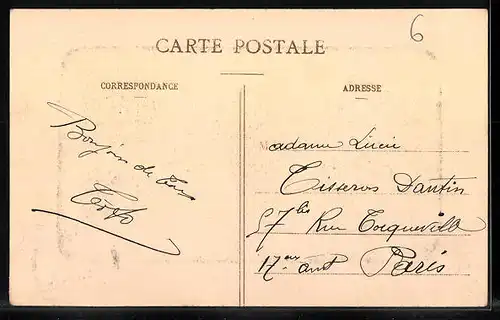 6
CARTE POSTALE
CORRESPONDANCE
ADRESSE
Bonjour de
Madame Lucie
Tisseros Dantin
57 bis Rue Tocqueville
17me arrt Paris